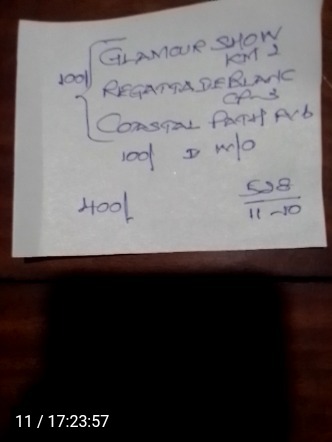 100/ GLAMOUR SHOW
KM 2
REGATTA DE BLANC
COASTAL PATH
100/ D W/O
400/
528
11-10
11 / 17:23:57